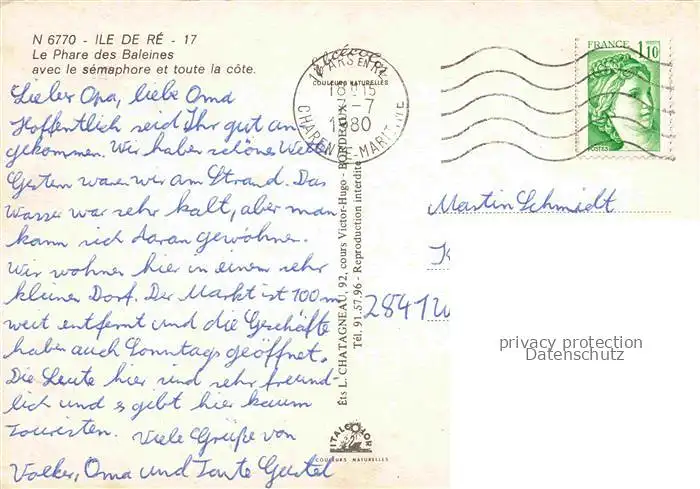 N 6770 - ILE DE RÉ - 17
Le Phare des Baleines
avec le sémaphore et toute la côte.
Lieber Opa, liebe Oma
Hoffentlich seid Ihr gut an
gekommen. Wir haben schönes Wetter
Gestern waren wir am Strand. Das
Wasser war sehr kalt, aber man
kann sich daran gewöhnen.
Wir wohnen hier in einem sehr
kleinen Dorf. Der Markt ist 100 m
weit entfernt und die Geschäfte
haben auch Sonntags geöffnet.
Die Leute hier sind sehr freund-
lich und es gibt hier kaum
Touristen. Viele Grüße von
Volker, Oma und Tante Gustel
COULEURS NATURELLES
17 ARS EN RE
18 15
-7
1980
CHARENTE-MARITIME
Éts L. CHATAGNEAU, 92, cours Victor-Hugo - BORDEAUX
Tél. 91.57.96 - Reproduction interdite
ITALCOLOR
COULEURS NATURELLES
FRANCE
1,10
POSTES
Martin Schmidt
2841 W
privacy protection
Datenschutz